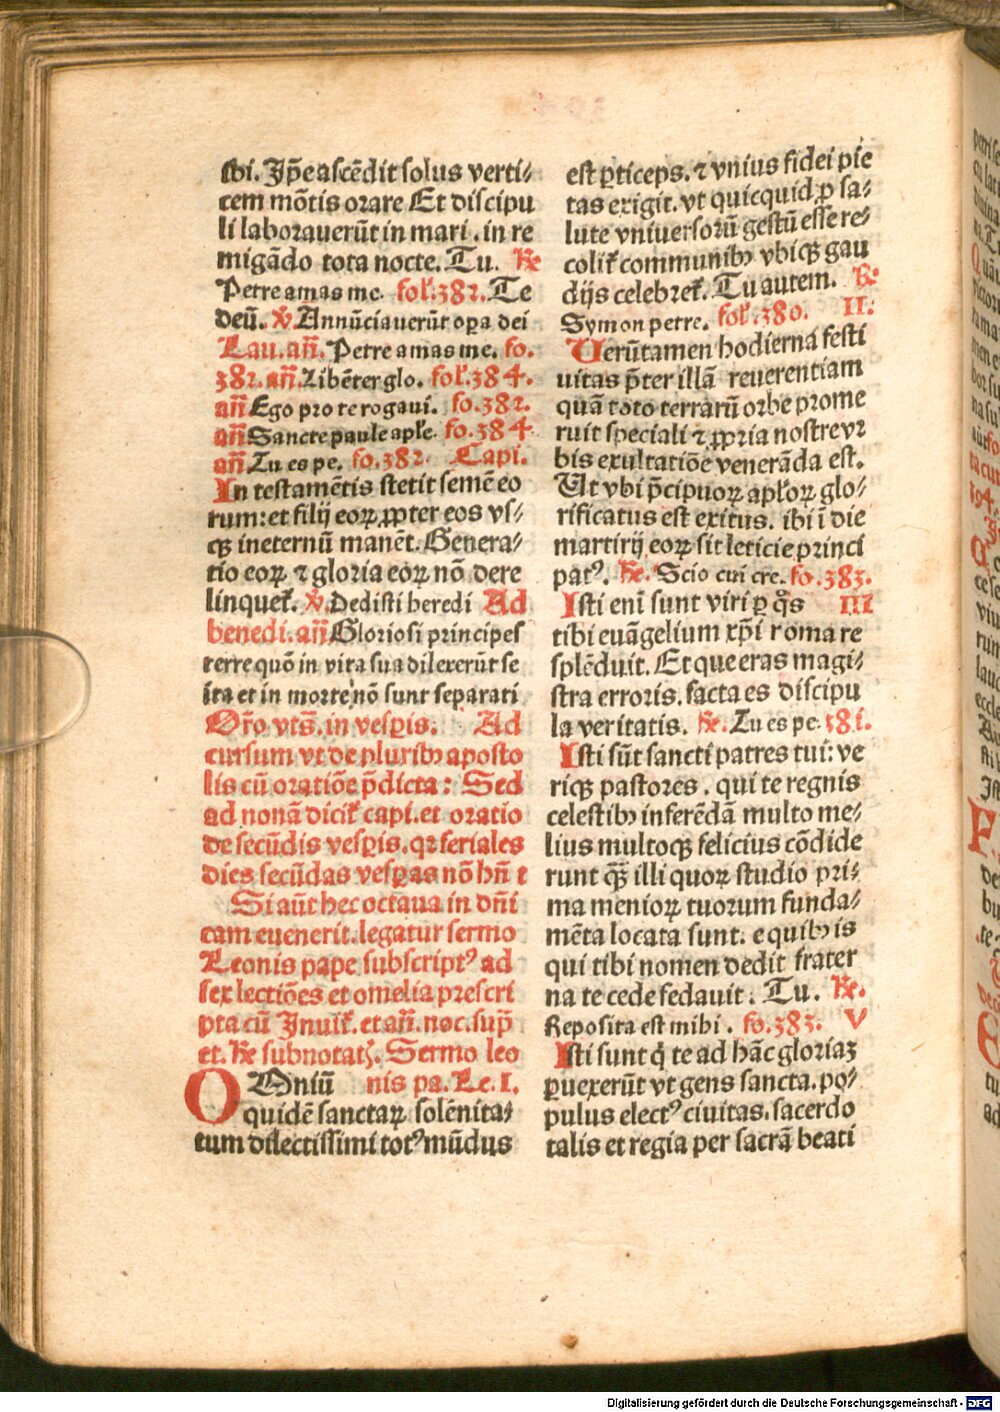 sbi. Ip̄e ascēdit solus verti⸗
cem mōtis orare Et discipu
li laborauerūt in mari . in re
migādo tota nocte. Tu. ℟
Petre amas me. fol. 382. Te
deū. ℣. Annūciauerūt oꝑa dei
Lau. añ. Petre amas me. fo.
382. añ. Libēter glo. fol. 384.
añ Ego pro te rogaui. fo. 382.
añ Sancte paule aple. fo. 384
añ Tu es pe. fo. 382. Capi.
In testamētis stetit semē eo
rum: et filij eoꝝ ꝓpter eos vs⸗
qꝫ ineternū manēt. Genera⸗
tio eoꝝ ⁊ gloria eoꝝ nō dere
linquet᷑. ℣. Dedisti heredi Ad
benedi. añ Gloriosi principes
terre quō in vita sua dilexerūt se
ita et in morte nō sunt separati
Orō vts̄. in vesꝑis. Ad
cursum vt de pluribꝫ aposto
lis cū oratiōe p̄dicta: Sed
ad nonā dicit᷑ capi. et oratio
de secūdis vesꝑis. qꝛ feriales
dies secūdas vesꝑas nō hn̄t
Si aūt hec octaua in dn̄i
cam euenerit. legatur sermo
Leonis pape subscriptꝰ ad
sex lectiōes et omelia prescri
pta cū Inuit᷑. et añ. noc. sup̄
et. ℟ subnotatꝭ. Sermo leo
O Oniū nis pa. Le. I.
quidē sanctaꝝ solēnita⸗
tum dilectissimi totꝰ mūdus
est ꝑticeps. ⁊ vnius fidei pie
tas exigit. vt quicquid ꝓ sa⸗
lute vniuersorū gestū esse re⸗
colit᷑ communibꝫ vbiqꝫ gau
dijs celebret᷑. Tu autem. ℟
Symon petre. fol. 380. II.
Uerūtamen hodierna festi
uitas p̄ter illā reuerentiam
quā toto terrarū orbe prome
ruit speciali ⁊ ꝓpria nostre vr
bis exultatiōe venerāda est.
Ut vbi p̄cipuoꝝ aplōꝝ glo⸗
rificatus est exitus. ibi ī die
martirij eoꝝ sit leticie princi
patꝰ. ℟. Scio cui cre. fo. 383.
Isti eni̅ sunt viri ꝑ q̊s III
tibi euāgelium xp̄i roma re
splēduit. Et que eras magi⸗
stra erroris. facta es discipu
la veritatis. ℟. Tu es pe. 381.
Isti sūt sancti patres tui: ve
riqꝫ pastores . qui te regnis
celestibꝫ inferēdā multo me⸗
lius multoqꝫ felicius cōdide
runt qꝫ̄ illi quoꝝ studio pri⸗
ma menioꝝ tuorum funda⸗
mēta locata sunt. e quibꝫ is
qui tibi nomen dedit frater
na te cede fedauit. Tu. ℟.
Reposita est mihi. fo. 383. V
Isti sunt q̇ te ad hāc gloriaꝫ
ꝓuexerūt vt gens sancta. po⸗
pulus electꝰ ciuitas. sacerdo
talis et regia per sacrā beati
Digitalisierung gefördert durch die Deutsche Forschungsgemeinschaft - DFG